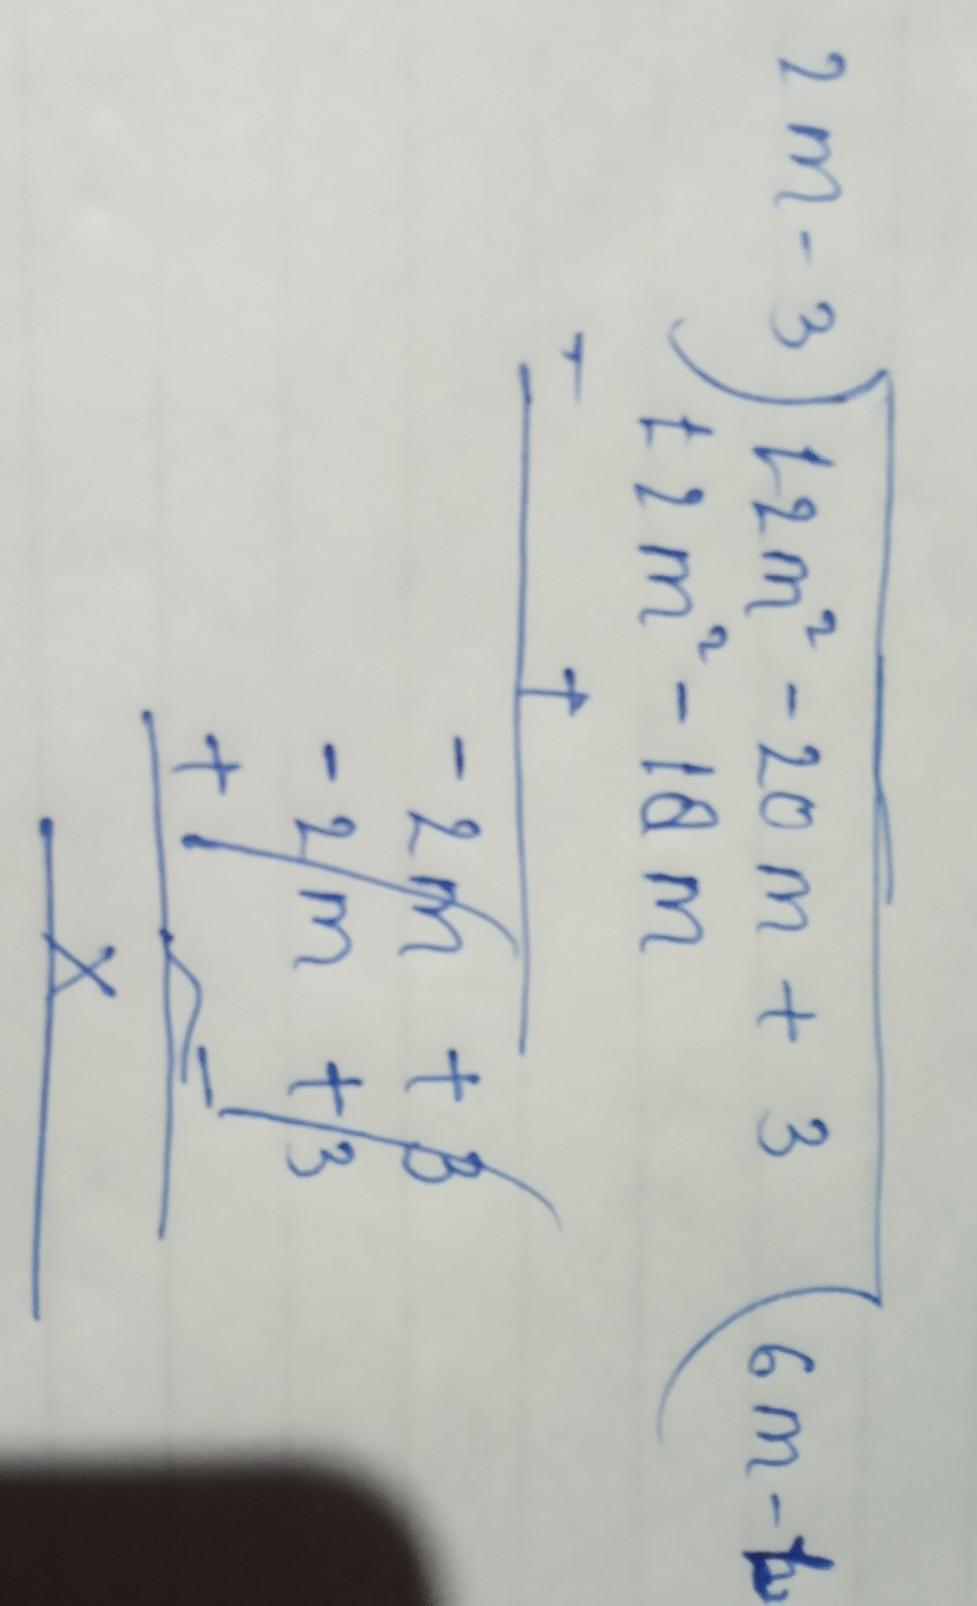 2m - 3 ) 12m² - 20m + 3 ( 6m -
12m² - 18m
- +
- 2m + 3
- 2m + 3
+ -
X